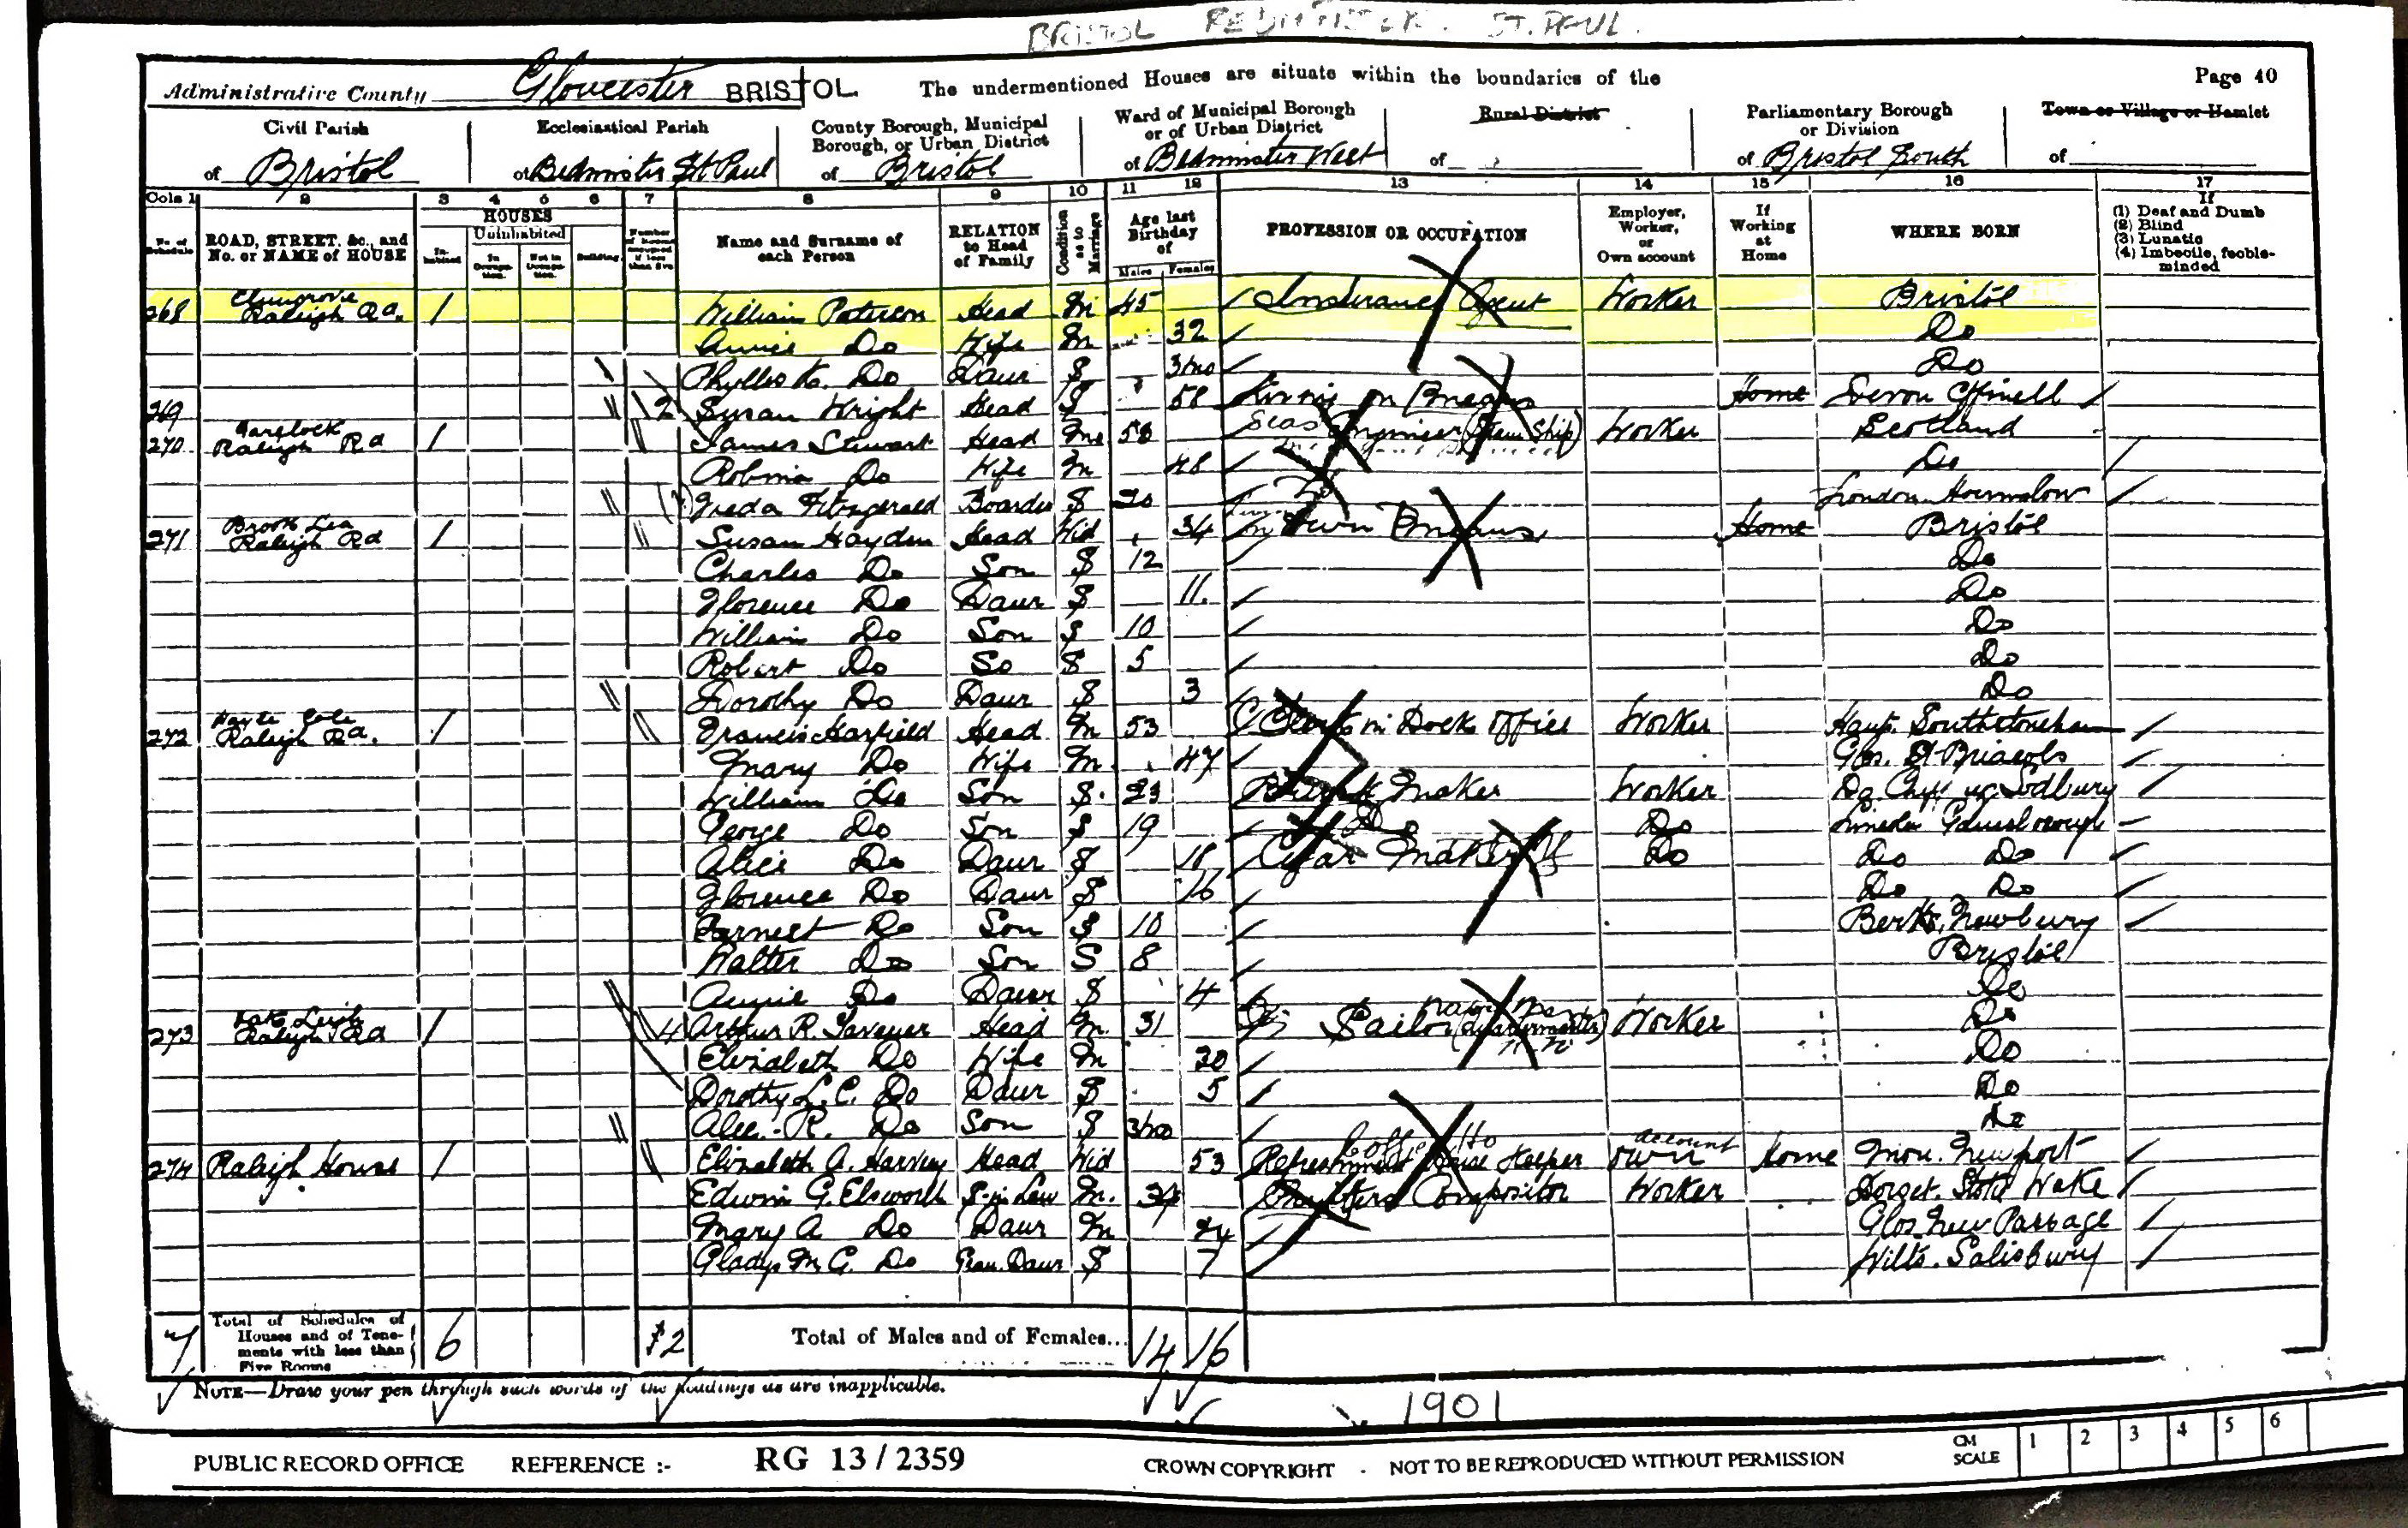 BRISTOL BEDMINSTER. ST. PAUL.
Administrative County Gloucester BRISTOL The undermentioned Houses are situate within the boundaries of the Page 40
Civil Parish Ecclesiastical Parish County Borough, Municipal Borough, or Urban District Ward of Municipal Borough or of Urban District Rural District Parliamentary Borough or Division Town or Village or Hamlet
of Bristol of Bedminster St Paul of Bristol of Bedminster West of of Bristol South of
Cols 1 2 3 4 5 6 7 8 9 10 11 12 13 14 15 16 17
No. of Schedule ROAD, STREET, &c., and No. or NAME of HOUSE HOUSES Inhabited Uninhabited In Occupation. Not in Occupation. Building. Number of Rooms occupied if less than five Name and Surname of each Person RELATION to Head of Family Condition as to Marriage Age last Birthday of Males Females PROFESSION OR OCCUPATION Employer, Worker, or Own account If Working at Home WHERE BORN If (1) Deaf and Dumb (2) Blind (3) Lunatic (4) Imbecile, feeble-minded
268 Elmgrove Raleigh Rd. 1 William Paterson Head M 45 Insurance Agent Worker Bristol
Annie Do Wife M 32 Do
Phyllis K. Do Daur S 3mo Do
269 2 Susan Wright Head S 58 Living on Means Home Devon
270 Garelock Raleigh Rd 1 James Stewart Head M 50 Seas Engineer (Steam Ship) Worker Scotland
Robina Do Wife M 48 Do
Fitzgerald Boarder S 20 London Hounslow
271 Brook Lea Raleigh Rd 1 Susan Hayden Head Wid 34 Living on Own Means Home Bristol
Charles Do Son S 12 Do
Florence Do Daur S 11. Do
William Do Son S 10 Do
Robert Do So S 5 Do
Dorothy Do Daur S 3 Do
272 Raleigh Rd. 1 Francis Harfield Head M 53 Clerk in Dock Office Worker Hants. Southstoneham
Mary Do Wife M. 47 Glos. St Briavels
William Do Son S. 23 Maker Worker Do Sodbury
George Do Son S 19 Do Do Lincoln Gainsborough
Alice Do Daur S 18 Cigar Maker Do Do Do
Florence Do Daur S 16 Do Do
Earnest Do Son S 10 Berks, Newbury
Walter Do Son S 8 Bristol
Annie Do Daur S 4 Do
273 Oak Leigh Raleigh Rd 1 4 Arthur R. Taverner Head M. 31 Sailor Worker Do
Elizabeth Do Wife M 30 Do
Dorothy L. C. Do Daur S 5 Do
Alec. R. Do Son S 3mo Do
274 Raleigh House 1 Elizabeth A. Harvey Head Wid 53 Refreshment House Keeper Coffee Ho own account Home Mon. Newport
Edwin G. Elsworth S-in Law M. 34 Printers Compositor Worker Dorset. Stoke Wake
Mary A Do Daur M 24 Glos New Passage
Gladys M. G. Do Gran. Daur S 7 Wilts. Salisbury
7 Total of Schedules of Houses and of Tenements with less than Five Rooms 6 2 Total of Males and of Females... 14 16
NOTE—Draw your pen through such words of the headings as are inapplicable.
1901
PUBLIC RECORD OFFICE REFERENCE :- RG 13 / 2359 CROWN COPYRIGHT . NOT TO BE REPRODUCED WITHOUT PERMISSION CM SCALE 1 2 3 4 5 6